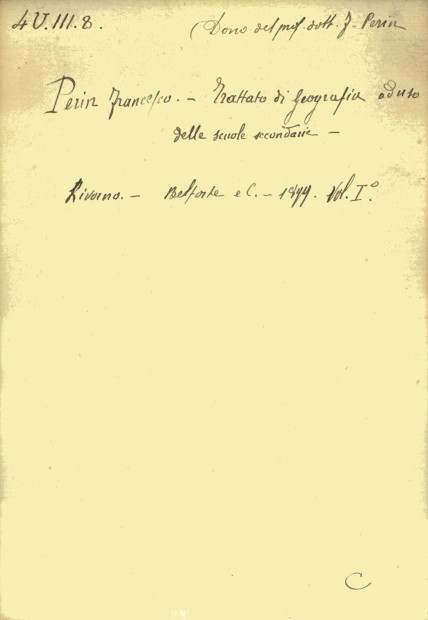 4V.III.8.
(Dono del prof. dott. F. Perin
Perin Francesco. — Trattato di Geografia ad uso
delle scuole secondarie —
Livorno. — Belforte e C. — 1899. Vol. I°.
C